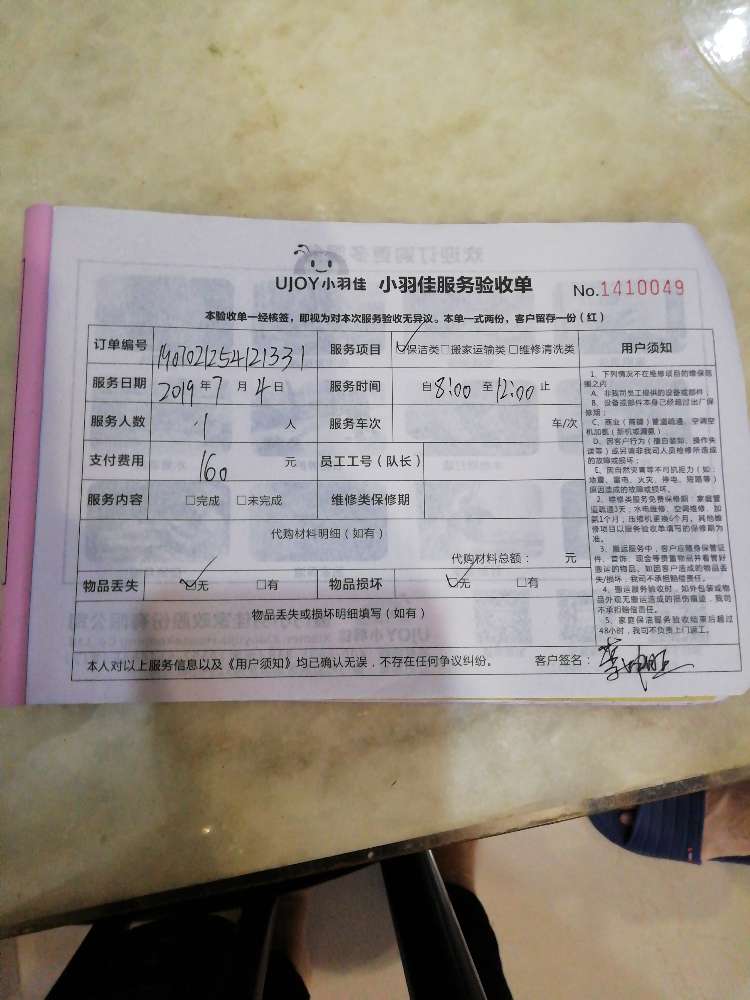 UJOY小羽佳 小羽佳服务验收单 No.1410049
本验收单一经核签，即视为对本次服务验收无异议。本单一式两份，客户留存一份（红）
订单编号 1907021254121331 服务项目 保洁类□搬家运输类□维修清洗类 用户须知
服务日期 2019年7月4日 服务时间 自8:00至12:00止
服务人数 1 人 服务车次 车/次
支付费用 160 元 员工工号（队长）
服务内容 □完成 □未完成 维修类保修期
代购材料明细（如有）
代购材料总额： 元
物品丢失 ☑无 □有 物品损坏 ☑无 □有
物品丢失或损坏明细填写（如有）
本人对以上服务信息以及《用户须知》均已确认无误，不存在任何争议纠纷。 客户签名：
1、下列情况不在维修项目的维保范
围之内：
A、非我司员工提供的设备或部件；
B、设备或部件本身已经超过出厂保
修期；
C、商业（商铺）管道疏通、空调空
机加氨（新机或漏氨）
D、因客户行为（擅自装卸、操作失
误等）或另请非我司人员维修所造成
的故障或损坏；
E、因自然灾害等不可抗拒力（如：
地震、雷电、火灾、停电、短路等）
原因造成的故障或损坏。
2、维修类服务免费保修期：家庭管
道疏通3天，水电维修、空调维修、加
氨1个月，压缩机更换6个月。其他维
修项目以服务验收单填写的保修期为
准。
3、搬运服务中，客户应随身保管证
件、首饰、现金等贵重物品并看管好
搬运的物品。如因客户造成的物品丢
失/损坏，我司不承担赔偿责任。
4、搬运服务验收时，如外包装或物
品外观无搬运造成的损伤痕迹，我司
不承担赔偿责任。
5、家庭保洁服务验收结束后超过
48小时，我司不负责上门返工。